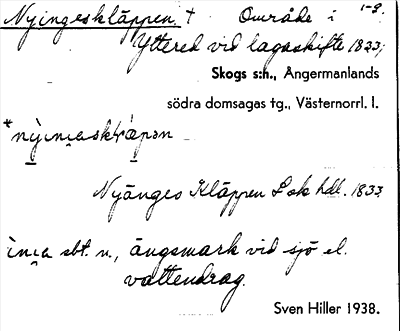 Nyingeskläppen † Område i 1-8.
Yttered vid lagaskifte 1833;
Skogs s:n., Ångermanlands
södra domsagas tg., Västernorrl. l.
Nyänges Kläppen Lsk hdl. 1833
sbt. n., ängsmark vid sjö el.
vattendrag.
Sven Hiller 1938.